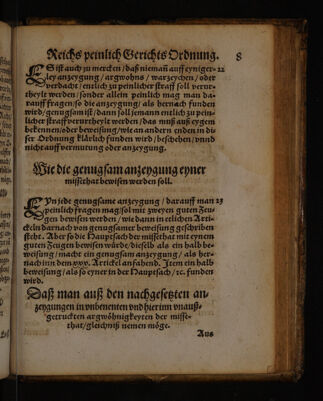 Reichs peinlich Gerichts Ordnung. 8
ES ist auch zu mercken / daß niemañ auff eyniger- 22
ley anzeygung / argwohns / warzeychen / oder
verdacht / entlich zu peinlicher straff soll verur-
theylt werden / sonder allein peinlich mag man da-
rauff fragen / so die anzeygung / als hernach funden
wird / genugsam ist / dann soll jemant entlich zu pein-
licher straff verurtheylt werden / das muß auß eygen
bekennen / oder beweisung / wie an andern enden in di-
ser Ordnung klärlich funden wird / beschehen / vnnd
nicht auff vermutung oder anzeygung.
Wie die genugsam anzeygung eyner
missethat bewisen werden soll.
EYn jede genugsame anzeygung / darauff man 23
peinlich fragen mag / sol mit zweyen guten Zeu-
gen bewisen werden / wie dann in etlichen Arti-
ckeln darnach von genugsamer beweisung geschriben
stehet. Aber so die Hauptsach der missethat mit eynem
guten Zeugen bewisen würde / dieselb als ein halb be-
weisung / macht ein genugsam anzeygung / als her-
nach inn dem xxx. Artickel anfahend. Item ein halb
beweisung / als so eyner in der Hauptsach / ꝛc. funden
wird.
Daß man auß den nachgesetzten an-
zeygungen in vnbenenten vnd hierinn vnauß-
getruckten argwöhnigkeyten der misse-
that / gleichniß nemen möge.
Aus